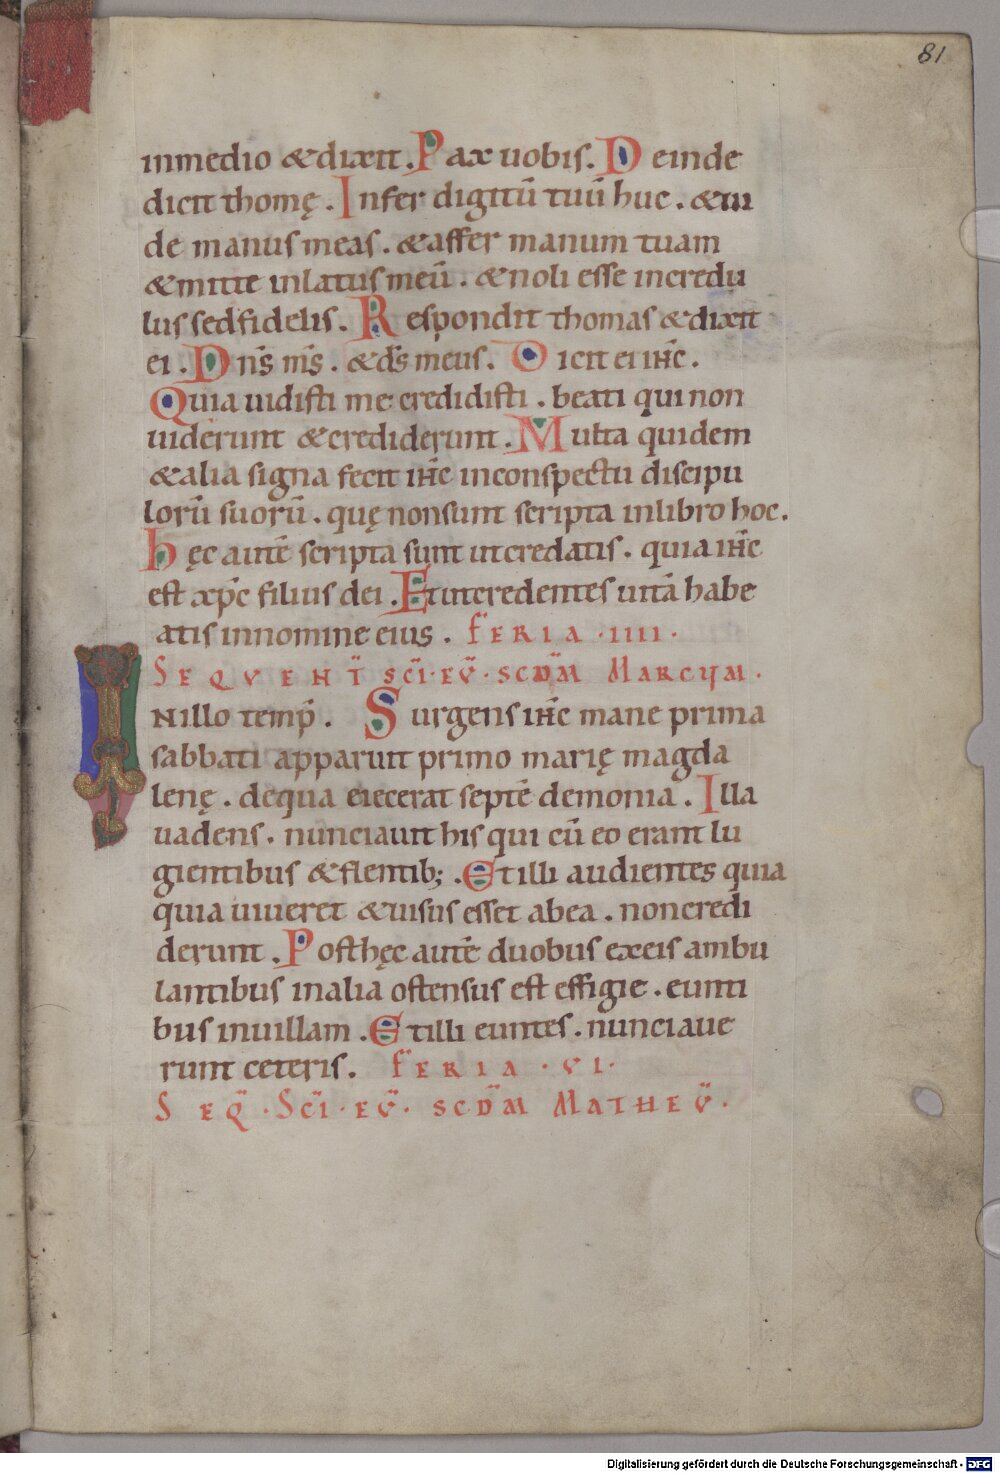 81
inmedio &dixit. Pax uobis. Deinde
dicit thomę. Infer digitū tuū huc. &ui
de manus meas. &affer manum tuam
&mitte inlatus meū. &noli esse incredu
lus sedfidelis. Respondit thomas &dixit
ei. Dn̄s m̄s. &d̄s meus. Dicit ei ih̄c.
Quia uidisti me credidisti. beati qui non
uiderunt &crediderunt. Multa quidem
&alia signa fecit ih̄c inconspectu discipu
lorū suorū. quę nonsunt scripta inlibro hoc.
hęc autē scripta sunt utcredatis. quia ih̄c
est xp̄c filius dei. Etutcredentes uitā habe
atis innomine eius. FERIA ·IIII·
SEQVENT̄ SC̄I·EV̄·SCDM̄ MARCUM.
INillo temp̄. Surgens ih̄c mane prima
sabbati apparuit primo marię magda
lenę. dequa eiecerat septē demonia. Illa
uadens. nunciauit his qui cū eo erant lu
gientibus &flentib; . Etilli audientes quia
quia uiueret &uisus esset abea. noncredi
derunt. Posthęc autē duobus exeis ambu
lantibus inalia ostensus est effigie. eunti
bus inuillam. Etilli euntes. nunciaue
runt ceteris. FERIA ·VI·
SEQ̄·SC̄I·EV̄· SCDM̄ MATHEV̄.
Digitalisierung gefördert durch die Deutsche Forschungsgemeinschaft - DFG